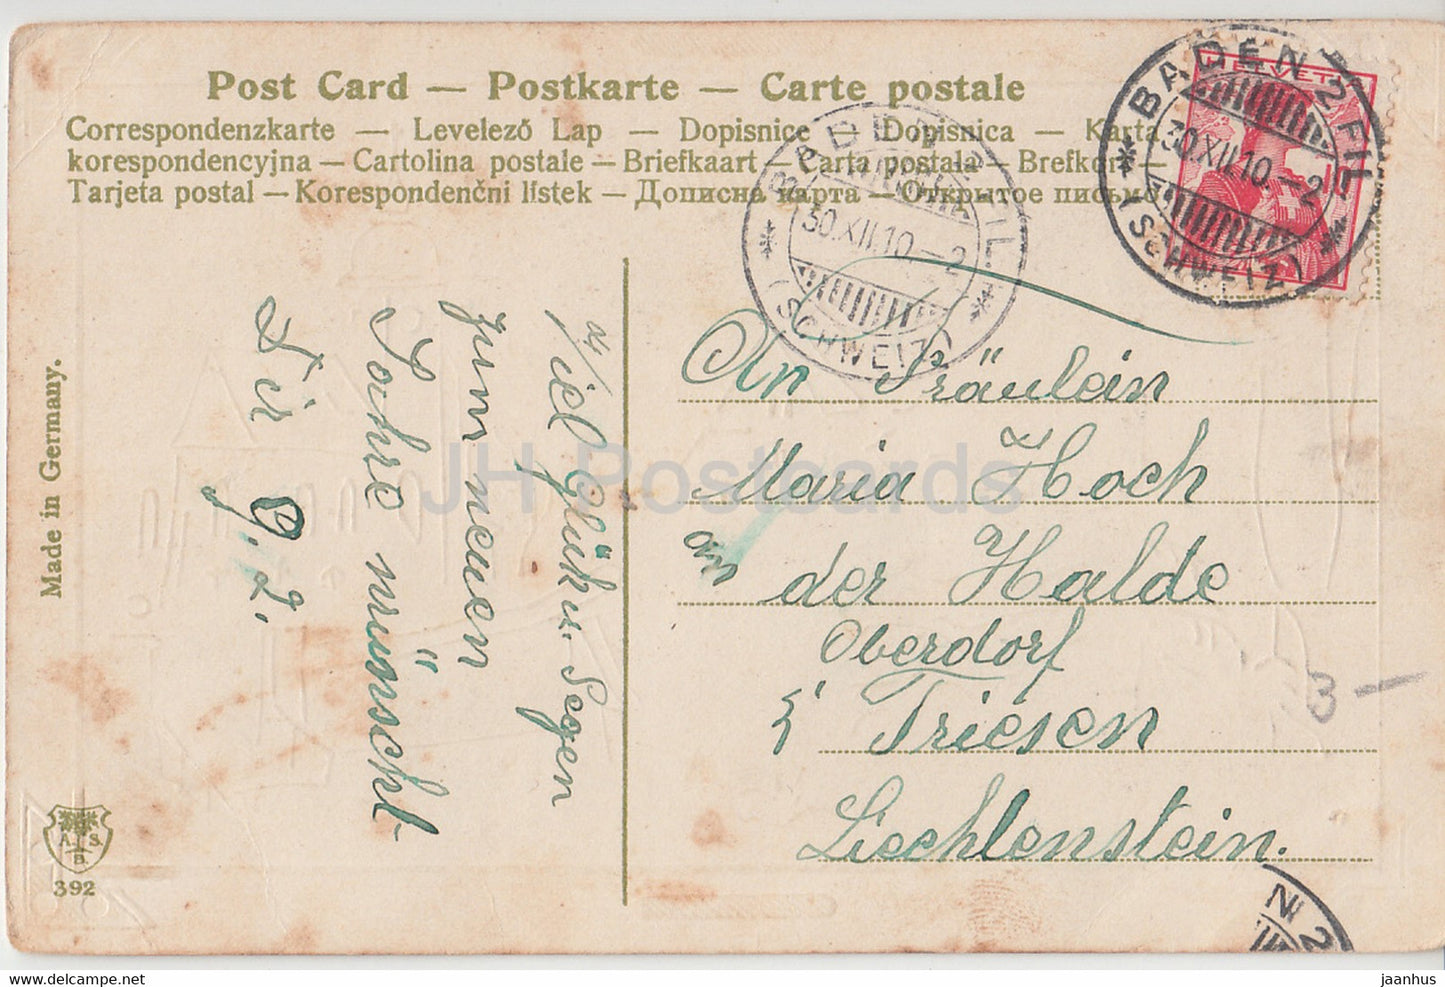 Post Card — Postkarte — Carte postale
Correspondenzkarte — Levelező Lap — Dopisnice — Dopisnica — Karta
korespondencyjna — Cartolina postale — Briefkaart — Carta postala — Brefkort —
Tarjeta postal — Korespondenčni lístek — Дописна карта — Открытое письмо
BADEN 2 FIL.
30.XII.10.–2
(SCHWEIZ)
HELVETIA
BADEN 2 FIL.
30.XII.10.–2
(SCHWEIZ)
An Fräulein
Maria Hoch
an der Halde
Oberdorf
Triesen
Liechtenstein.
Viel Glück u. Segen
zum neuen
Jahre wünscht
Dir
Made in Germany.
A.S.
B.
392
3 —
N 2
JH Postcards
jaanhus